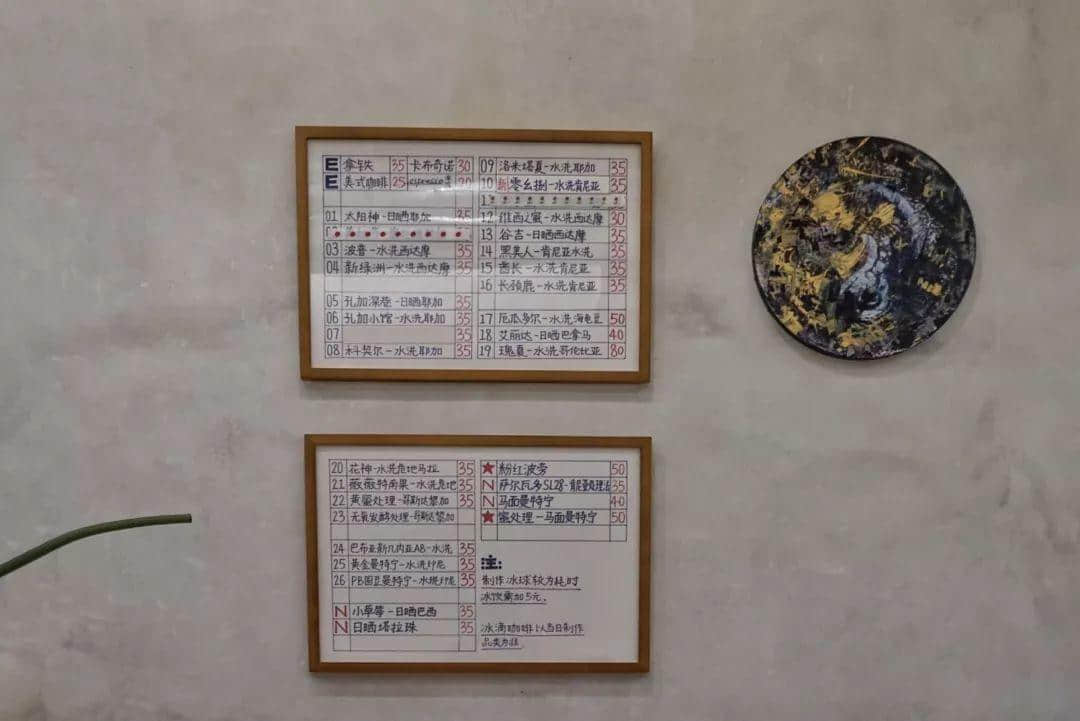 E 拿铁 35 卡布奇诺 30
E 美式咖啡 25 espresso 20
01 太阳神-日晒耶加 35
03 波音-水洗西达摩 35
04 新绿洲-水洗西达摩 35
05 孔加深巷-日晒耶加 35
06 孔加小馆-水洗耶加 35
07 35
08 科契尔-水洗耶加 35
09 洛米塔夏-水洗耶加 35
10 新零幺捌-水洗肯尼亚 35
12 维西之蜜-水洗西达摩 30
13 谷吉-日晒西达摩 35
14 黑美人-肯尼亚水洗 35
15 酋长-水洗肯尼亚 35
16 长颈鹿-水洗肯尼亚 35
17 厄瓜多尔-水洗海龟豆 50
18 艾丽达-日晒巴拿马 40
19 瑰夏-水洗哥伦比亚 80
20 花神-水洗危地马拉 35
21 薇薇特南果-水洗危地 35
22 黄蜜处理-哥斯达黎加 35
23 无氧发酵处理-哥斯达黎加
24 巴布亚新几内亚AB-水洗 35
25 黄金曼特宁-水洗印尼 35
26 PB圆豆曼特宁-水洗印尼 35
N 小草莓-日晒巴西 35
N 日晒塔拉珠 35
★ 粉红波旁 50
N 萨尔瓦多SL28- 35
N 马面曼特宁 40
★ 蜜处理-马面曼特宁 50
注:
制作冰球较为耗时
冰饮需加5元.
冰滴咖啡以当日制作
品类为准.